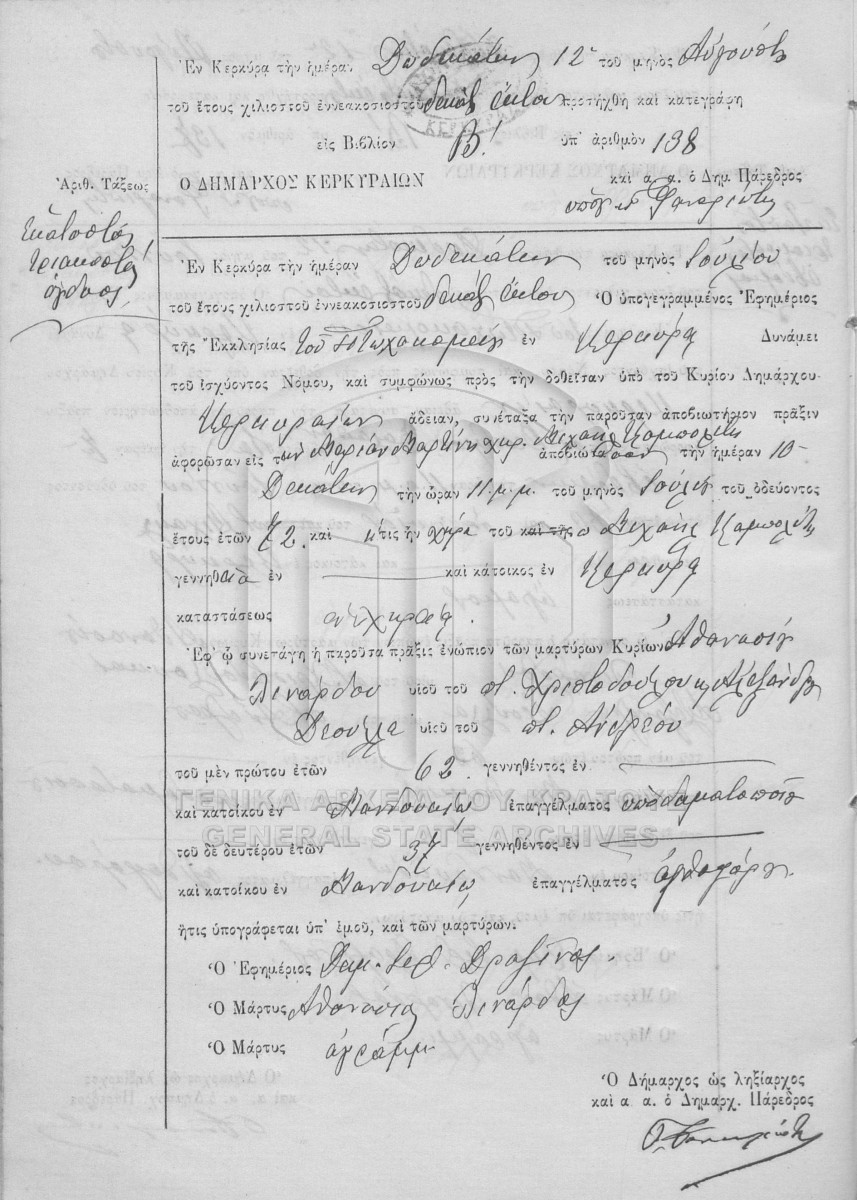 Ἐν Κερκύρᾳ τὴν ἡμέραν Δωδεκάτην 12 τοῦ μηνὸς Αὐγούστου
τοῦ ἔτους χιλιοστοῦ ἐννεακοσιοστοῦ δεκάτου ἕκτου προσήχθη καὶ κατεγράφη
εἰς Βιβλίον Β! ὑπ' ἀριθμὸν 138
Ἀριθ. Τάξεως
Ὁ ΔΗΜΑΡΧΟΣ ΚΕΡΚΥΡΑΙΩΝ
καὶ α. α. ὁ Δημ. Πάρεδρος
Ἑκατοστὸς
τριακοστὸς
ὄγδοος
Ἐν Κερκύρᾳ τὴν ἡμέραν Δωδεκάτην τοῦ μηνὸς Ἰουλίου
τοῦ ἔτους χιλιοστοῦ ἐννεακοσιοστοῦ δεκάτου ἕκτου Ὁ ὑπογεγραμμένος Ἐφημέριος
τῆς Ἐκκλησίας τοῦ Πτωχοκομείου ἐν Κερκύρᾳ Δυνάμει
τοῦ ἰσχύοντος Νόμου, καὶ συμφώνως πρὸς τὴν δοθεῖσαν ὑπὸ τοῦ Κυρίου Δημάρχου
Κερκυραίων ἄδειαν, συνέταξα τὴν παροῦσαν ἀποβιωτήριον πρᾶξιν
ἀφορῶσαν εἰς τὴν Μαρίαν Μαρτίνη χηρ. Μιχαὴλ ἀποβιώσασαν τὴν ἡμέραν 10
Δεκάτην τὴν ὥραν 11 μ.μ. τοῦ μηνὸς Ἰουλίου τοῦ ὁδεύοντος
ἔτους ἐτῶν 72 καὶ ἥτις ἦν χήρα τοῦ καὶ τῆς Μιχαὴλ
γεννηθεῖσα ἐν καὶ κάτοικος ἐν Κερκύρᾳ
καταστάσεως
Ἐφ' ᾧ συνετάγη ἡ παροῦσα πρᾶξις ἐνώπιον τῶν μαρτύρων Κυρίων Ἀθανασίου
Λινάρδου υἱοῦ τοῦ π. Χριστοδούλου κ. Ἀλεξάνδρου
υἱοῦ τοῦ π. Ἀνδρέου
τοῦ μὲν πρώτου ἐτῶν 62 γεννηθέντος ἐν
καὶ κατοίκου ἐν Μανδουκίῳ ἐπαγγέλματος ὑποδηματοποιοῦ
τοῦ δὲ δευτέρου ἐτῶν 37 γεννηθέντος ἐν
καὶ κατοίκου ἐν Μανδουκίῳ ἐπαγγέλματος ἀχθοφόρου
ἥτις ὑπογράφεται ὑπ' ἐμοῦ, καὶ τῶν μαρτύρων.
Ὁ Ἐφημέριος
Ὁ Μάρτυς Ἀθανάσιος Λινάρδος
Ὁ Μάρτυς ἀγράμμ.
Ὁ Δήμαρχος ὡς ληξίαρχος
καὶ α α. ὁ Δημαρχ. Πάρεδρος
ΓΕΝΙΚΑ ΑΡΧΕΙΑ ΤΟΥ ΚΡΑΤΟΥΣ
GENERAL STATE ARCHIVES